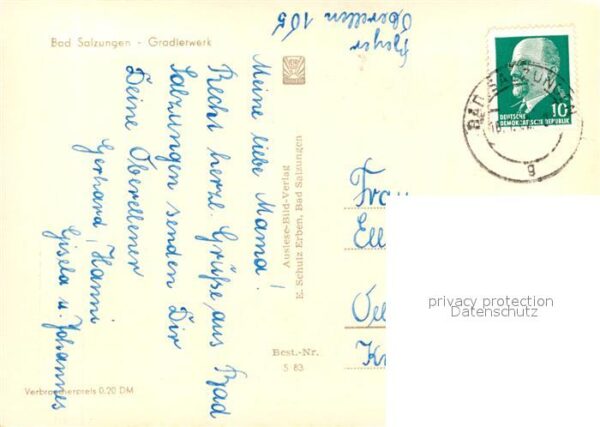 Bad Salzungen - Gradierwerk
Heyer
Oberellen 105
Meine liebe Mama!
Recht herzl. Grüße aus Bad
Salzungen senden Dir
Deine Oberellener
Gerhard, Hanni
Gisela u. Johannes
Auslese-Bild-Verlag
E. Schulz Erben, Bad Salzungen
Best.-Nr.
S 83
Verbraucherpreis 0,20 DM
10
DEUTSCHE
DEMOKRATISCHE REPUBLIK
BAD SALZUNGEN
g
Frau
Ell
privacy protection
Datenschutz